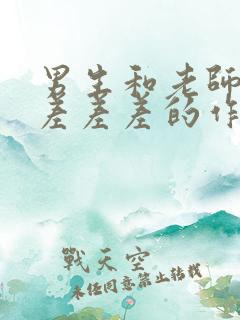 男生和老師
差差差的作
戰天空
未经同意禁止转载